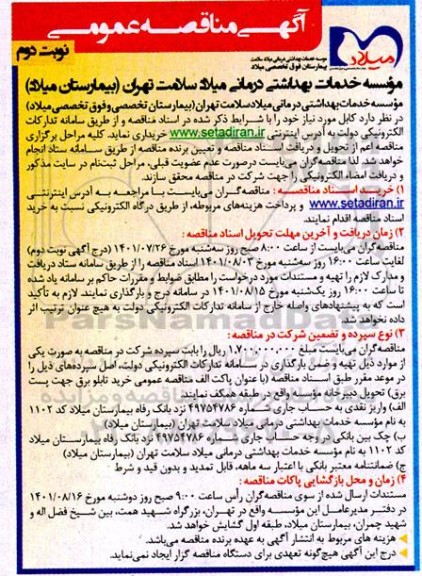 آگهی مناقصه عمومی
نوبت دوم
میلاد
موسسه خدمات بهداشتی درمانی میلاد سلامت
بیمارستان فوق تخصصی میلاد
مؤسسه خدمات بهداشتی درمانی میلاد سلامت تهران (بیمارستان میلاد)
مؤسسه خدمات بهداشتی درمانی میلاد سلامت تهران (بیمارستان تخصصی و فوق تخصصی میلاد)
در نظر دارد کابل مورد نیاز خود را با شرایط ذکر شده در اسناد مناقصه و از طریق سامانه تدارکات
الکترونیکی دولت به آدرس اینترنتی www.setadiran.ir خریداری نماید. کلیه مراحل برگزاری
مناقصه اعم از تحویل و دریافت اسناد مناقصه و تعیین برنده مناقصه از طریق سامانه ستاد انجام
خواهد شد. لذا مناقصه‌گران می‌بایست درصورت عدم عضویت قبلی، مراحل ثبت‌نام در سایت مذکور
و دریافت امضاء الکترونیکی را جهت شرکت در مناقصه محقق سازند.
۱) خرید اسناد مناقصه : مناقصه‌گران می‌بایست با مراجعه به آدرس اینترنتی
www.setadiran.ir و پرداخت هزینه‌های مربوطه، از طریق درگاه الکترونیکی نسبت به خرید
اسناد مناقصه اقدام نمایند.
۲) زمان دریافت و آخرین مهلت تحویل اسناد مناقصه :
مناقصه‌گران می‌بایست از ساعت ۸:۰۰ صبح روز سه‌شنبه مورخ ۱۴۰۱/۰۷/۲۶ (درج آگهی نوبت دوم)
لغایت ساعت ۱۶:۰۰ روز سه‌شنبه مورخ ۱۴۰۱/۰۸/۰۳ اسناد مناقصه را از طریق سامانه ستاد دریافت
و مدارک لازم را تهیه و مستندات مورد درخواست را مطابق ضوابط و مقررات حاکم بر سامانه یاد شده
تا ساعت ۱۶:۰۰ روز یک‌شنبه مورخ ۱۴۰۱/۰۸/۱۵ در سامانه درج و بارگذاری نمایند. لازم به تأکید
است که به پیشنهادهای واصله خارج از سامانه تدارکات الکترونیکی دولت به هیچ عنوان ترتیب اثر
داده نخواهد شد.
۳) نوع سپرده و تضمین شرکت در مناقصه :
مناقصه‌گران می‌بایست مبلغ ۱.۷۰۰.۰۰۰.۰۰۰ ریال را بابت سپرده شرکت در مناقصه به صورت یکی
از موارد ذیل تهیه و ضمن بارگذاری در سامانه تدارکات الکترونیکی دولت، اصل سپرده‌های ذیل را
در موعد مقرر طبق اسناد مناقصه (با عنوان پاکت الف مناقصه عمومی خرید تابلو برق جهت پست
برق) تحویل دبیرخانه مؤسسه واقع در طبقه همکف نمایند.
الف) واریز نقدی به حساب جاری شماره ۴۹۷۵۴۷۸۶ نزد بانک رفاه بیمارستان میلاد کد ۱۱۰۲
به نام مؤسسه خدمات بهداشتی درمانی میلاد سلامت تهران (بیمارستان میلاد)
ب) چک بین بانکی در وجه حساب جاری شماره ۴۹۷۵۴۷۸۶ نزد بانک رفاه بیمارستان میلاد
کد ۱۱۰۲ به نام مؤسسه خدمات بهداشتی درمانی میلاد سلامت تهران (بیمارستان میلاد)
ج) ضمانتنامه معتبر بانکی با اعتبار سه ماهه، قابل تمدید و بدون قید و شرط
۴) زمان و محل بازگشایی پاکات مناقصه :
مستندات ارسال شده از سوی مناقصه‌گران رأس ساعت ۹:۰۰ صبح روز دوشنبه مورخ ۱۴۰۱/۰۸/۱۶
در دفتر مدیرعامل این مؤسسه واقع در تهران، بزرگراه شهید همت، بین شیخ فضل اله و
شهید چمران، بیمارستان میلاد، طبقه اول گشایش خواهد شد.
هزینه های مربوط به انتشار آگهی به عهده برنده مناقصه می‌باشد.
درج این آگهی هیچ‌گونه تعهدی برای دستگاه مناقصه گزار ایجاد نمی‌نماید.